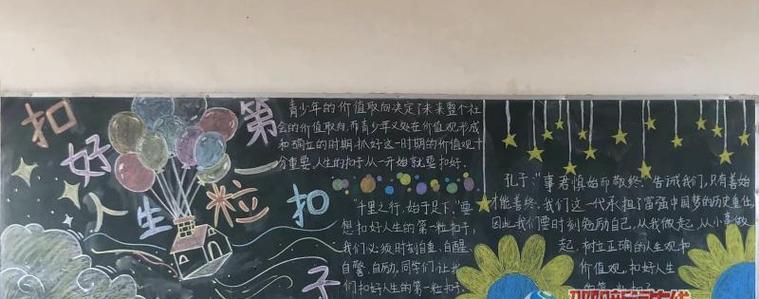 扣好人生第一粒扣子
青少年的价值取向决定了未来整个社
会的价值取向,而青少年又处在价值观形成
和确立的时期,抓好这一时期的价值观十
分重要,人生的扣子从一开始就要扣好。
"千里之行,始于足下。"要
想扣好人生的第一粒扣子,
我们必须时刻自重、自醒、
自警、自励,同学们,让我
们扣好人生的第一粒扣子。
孔子:"事者慎始而敬终。告诫我们,只有善始
才能善终。我们这一代承担了富强中国梦的历史重任,
因此我们要时刻勉励自己,从我做起,从小事做
起,树立正确的人生观和
价值观,扣好人生
的第一粒扣子